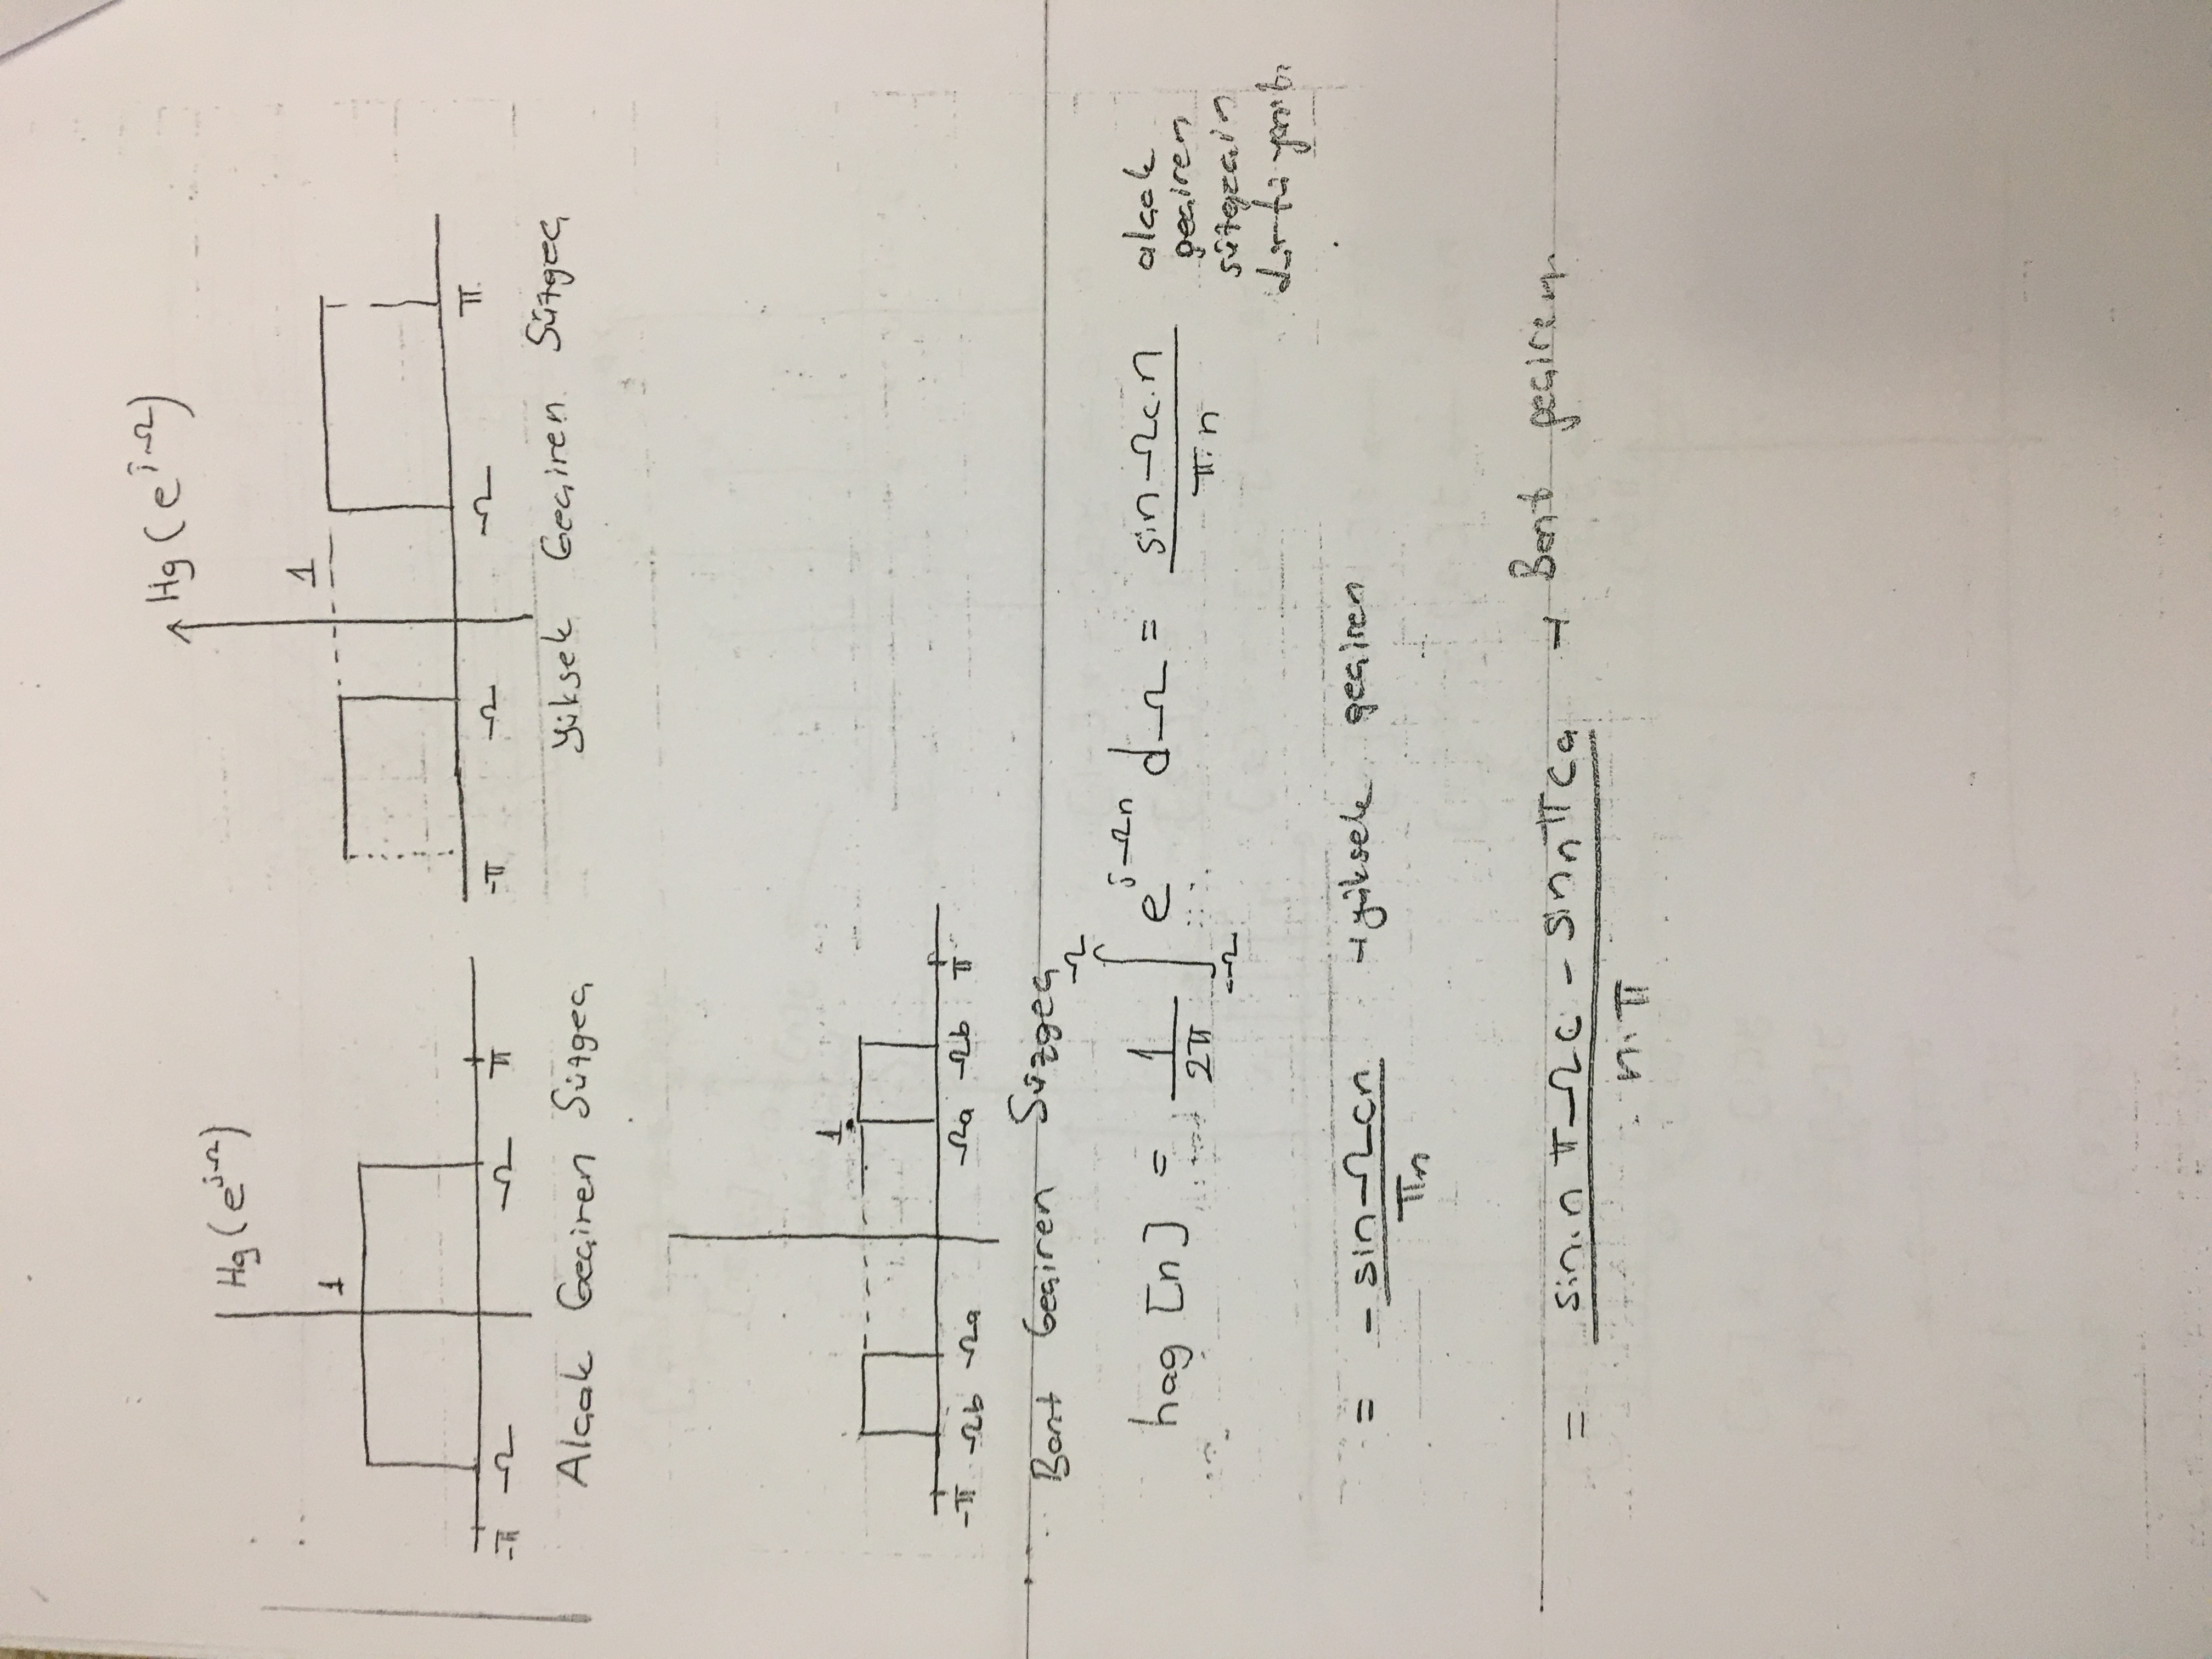 Hg(e^jΩ)
1
-π -Ω Ω π
Alçak Geçiren Süzgeç
Hg(e^jΩ)
1
-π -Ω Ω π
Yüksek Geçiren Süzgeç
1
-π -Ωb -Ωa Ωa Ωb π
Bant Geçiren Süzgeç
hag [n] = 1/2π ∫_{-Ω}^{Ω} e^{jΩn} dΩ = sinΩc.n / π.n alçak
geçiren
süzgeçin
dürtü yanıtı
= -sinΩcn / πn → yüksek geçiren
= sin.nπΩc - sin nπca / n.π → Bant geçiren